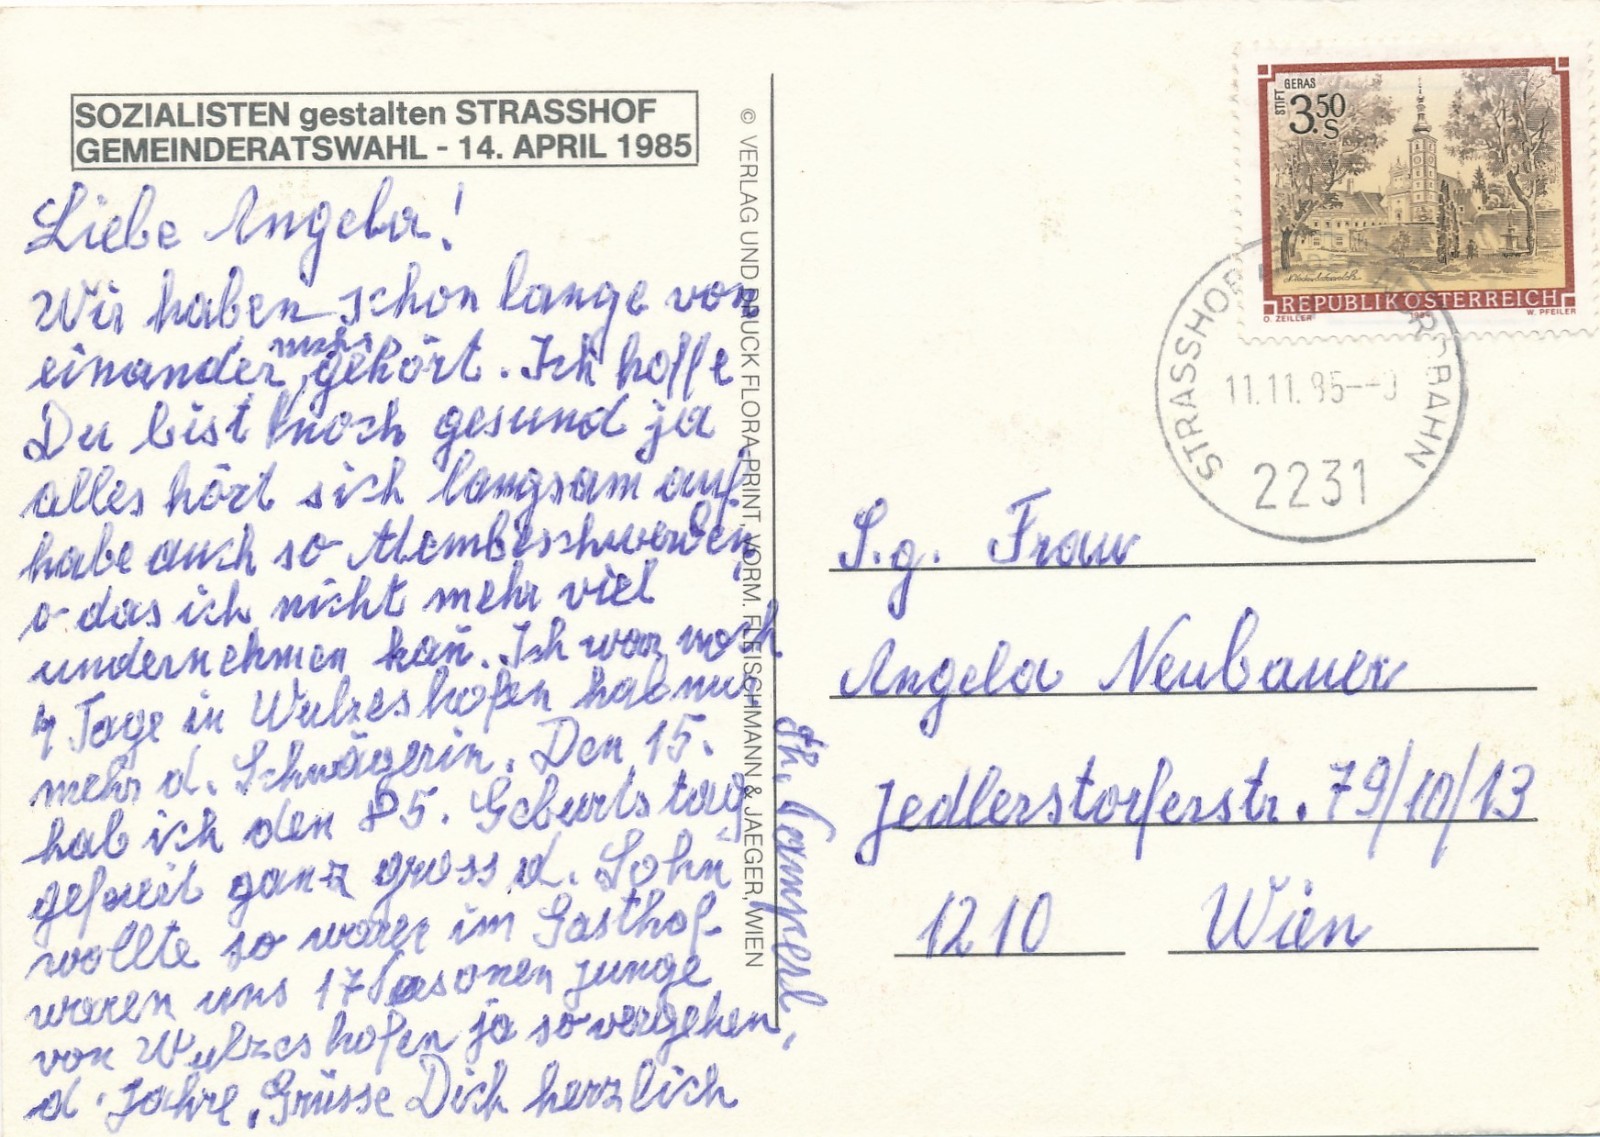 SOZIALISTEN gestalten STRASSHOF
GEMEINDERATSWAHL - 14. APRIL 1985
Liebe Angela!
Wir haben schon lange von
einander nichts gehört. Ich hoffe
Du bist noch gesund ja
alles hört sich langsam auf
habe auch so Atembeschwerden,
o das ich nicht mehr viel
undernehmen kan̄. Ich war noch
4 Tage in Wulzeshofen hab nur
mehr d. Schwägerin. Den 15.
hab ich den 85. Geburtstag
gefeirt ganz gross d. Sohn
wollte so waren im Gasthof
waren uns 17 Personen junge
von Wulzeshofen ja so vergehen
d. Jahre, Grüsse Dich herzlich
© VERLAG UND DRUCK FLORA-PRINT, VORM. FLEISCHMANN & JAEGER, WIEN
STIFT GERAS
3.50 S
REPUBLIK ÖSTERREICH
O. ZEILLER 1984 W. PFEILER
STRASSHOF NORDBAHN
11.11.85
2231
S.g. Frau
Angela Neubauer
Jedlerstorferstr. 79/10/13
1210 Wien